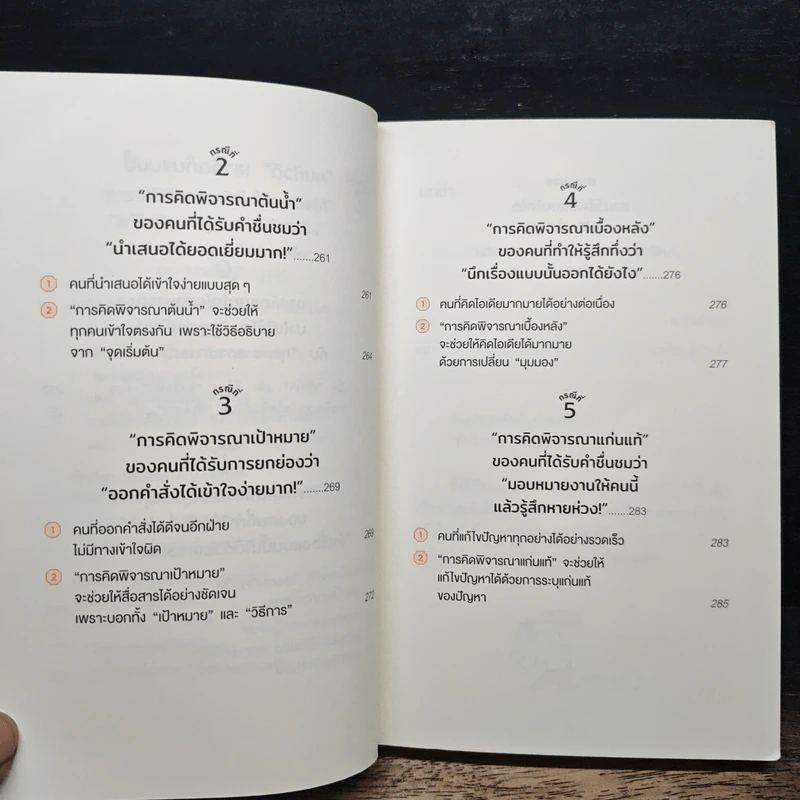 กรณีที่
2
“การคิดพิจารณาต้นน้ำ”
ของคนที่ได้รับคำชื่นชมว่า
“นำเสนอได้ยอดเยี่ยมมาก!”......261
1 คนที่นำเสนอได้เข้าใจง่ายแบบสุด ๆ 261
2 “การคิดพิจารณาต้นน้ำ” จะช่วยให้
ทุกคนเข้าใจตรงกัน เพราะใช้วิธีอธิบาย
จาก “จุดเริ่มต้น” 264
กรณีที่
3
“การคิดพิจารณาเป้าหมาย”
ของคนที่ได้รับการยกย่องว่า
“ออกคำสั่งได้เข้าใจง่ายมาก!”......269
1 คนที่ออกคำสั่งได้ดีจนอีกฝ่าย 269
ไม่มีทางเข้าใจผิด
2 “การคิดพิจารณาเป้าหมาย”
จะช่วยให้สื่อสารได้อย่างชัดเจน 272
เพราะบอกทั้ง “เป้าหมาย” และ “วิธีการ”
กรณีที่
4
“การคิดพิจารณาเบื้องหลัง”
ของคนที่ทำให้รู้สึกทึ่งว่า
“นึกเรื่องแบบนั้นออกได้ยังไง”......276
1 คนที่คิดไอเดียมากมายได้อย่างต่อเนื่อง 276
2 “การคิดพิจารณาเบื้องหลัง”
จะช่วยให้คิดไอเดียได้มากมาย
ด้วยการเปลี่ยน “มุมมอง” 277
กรณีที่
5
“การคิดพิจารณาแก่นแท้”
ของคนที่ได้รับคำชื่นชมว่า
“มอบหมายงานให้คนนี้
แล้วรู้สึกหายห่วง!”......283
1 คนที่แก้ไขปัญหาทุกอย่างได้อย่างรวดเร็ว 283
2 “การคิดพิจารณาแก่นแท้” จะช่วยให้
แก้ไขปัญหาได้ด้วยการระบุแก่นแท้
ของปัญหา 285